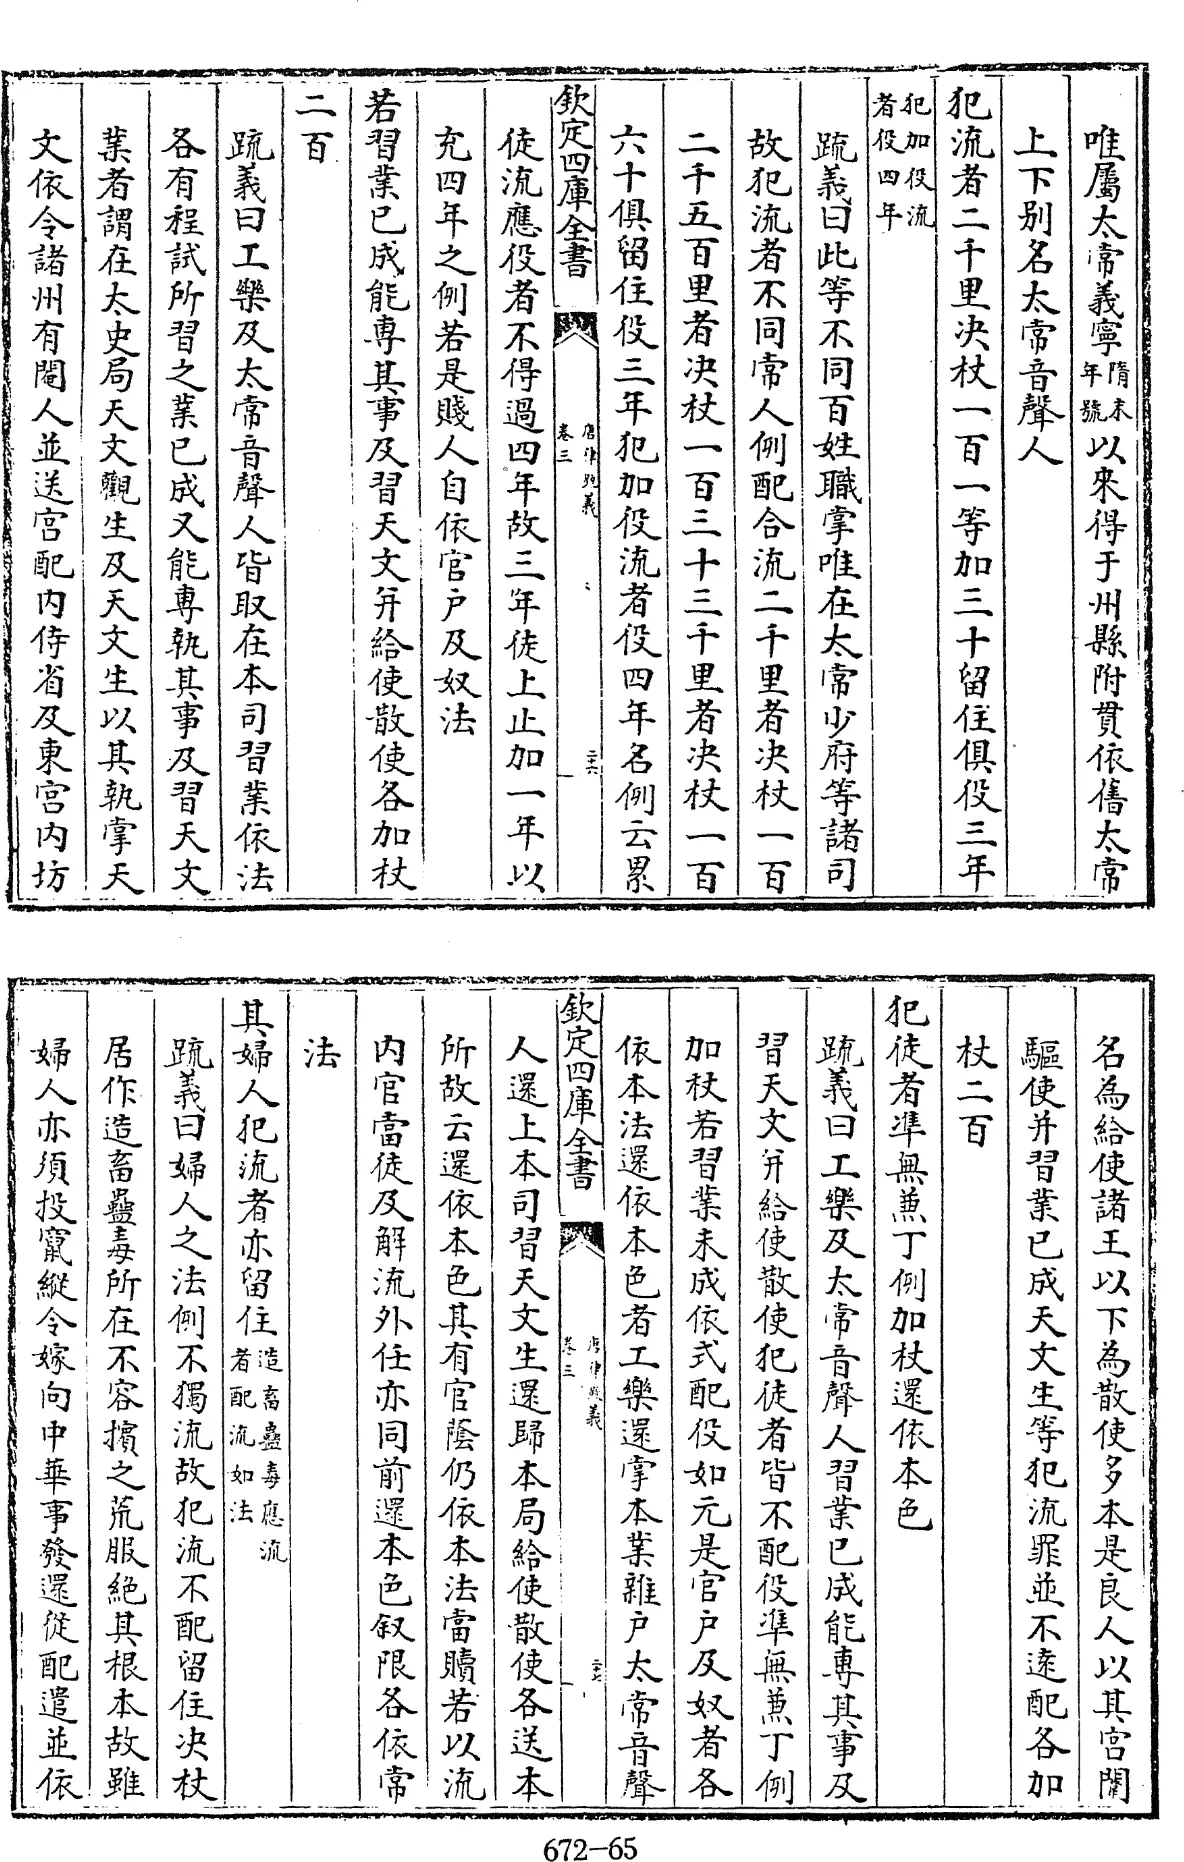 唯屬太常義寧隋末年號以來得于州縣附貫依舊太常
上下别名太常音聲人
犯流者二千里决杖一百一等加三十留住俱役三年
犯加役流者役四年
疏義曰此等不同百姓職掌唯在太常少府等諸司
故犯流者不同常人例配合流二千里者决杖一百
二千五百里者决杖一百三十三千里者决杖一百
六十俱留住役三年犯加役流者役四年名例云累
欽定四庫全書
唐律疏義
卷三
二十六
徒流應役者不得過四年故三年徒上止加一年以
充四年之例若是賤人自依官户及奴法
若習業已成能專其事及習天文并給使散使各加杖
二百
疏義曰工樂及太常音聲人皆取在本司習業依法
各有程試所習之業已成又能專執其事及習天文
業者謂在太史局天文觀生及天文生以其執掌天
文依令諸州有閹人並送宫配内侍省及東宫内坊
名為給使諸王以下為散使多本是良人以其宫闈
驅使并習業已成天文生等犯流罪並不逺配各加
杖二百
犯徒者準無兼丁例加杖還依本色
疏義曰工樂及太常音聲人習業已成能專其事及
習天文并給使散使犯徒者皆不配役準無兼丁例
加杖若習業未成依式配役如元是官户及奴者各
依本法還依本色者工樂還掌本業雜户太常音聲
欽定四庫全書
唐律疏義
卷三
二十七
人還上本司習天文生還歸本局給使散使各送本
所故云還依本色其有官䕃仍依本法當贖若以流
内官當徒及解流外任亦同前還本色叙限各依常
法
其婦人犯流者亦留住造畜蠱毒應流者配流如法
疏義曰婦人之法例不獨流故犯流不配留住决杖
居作造畜蠱毒所在不容擯之荒服絶其根本故雖
婦人亦須投竄縱令嫁向中華事發還從配遣並依
672-65